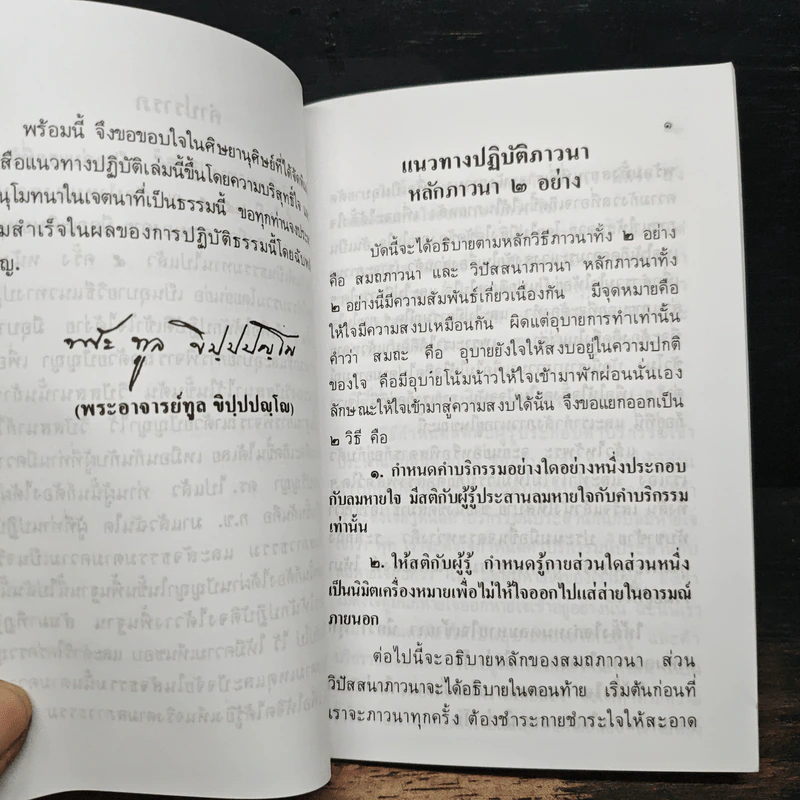 พร้อมนี้ จึงขอขอบใจในศิษยานุศิษย์ที่ได้
สือแนวทางปฏิบัติเล่มนี้ขึ้นโดยความบริสุทธิ์ใจ
นุโมทนาในเจตนาที่เป็นธรรมนี้ ขอทุกท่านจง
มสำเร็จในผลของการปฏิบัติธรรมนี้โดย
ญ.
พระ ทูล ขิปฺปปญฺโญ
(พระอาจารย์ทูล ขิปฺปปญฺโญ)
๑
แนวทางปฏิบัติภาวนา
หลักภาวนา ๒ อย่าง
บัดนี้จะได้อธิบายตามหลักวิธีภาวนาทั้ง ๒ อย่าง
คือ สมถภาวนา และ วิปัสสนาภาวนา หลักภาวนาทั้ง
๒ อย่างนี้มีความสัมพันธ์เกี่ยวเนื่องกัน มีจุดหมายคือ
ให้ใจมีความสงบเหมือนกัน ผิดแต่อุบายการทำเท่านั้น
คำว่า สมถะ คือ อุบายยังใจให้สงบอยู่ในความปกติ
ของใจ คือมีอุบายโน้มน้าวให้ใจเข้ามาพักผ่อนนั่นเอง
ลักษณะให้ใจเข้ามาสู่ความสงบได้นั้น จึงขอแยกออกเป็น
๒ วิธี คือ
๑. กำหนดคำบริกรรมอย่างใดอย่างหนึ่งประกอบ
กับลมหายใจ มีสติกับผู้รู้ประสานลมหายใจกับคำบริกรรม
เท่านั้น
๒. ให้สติกับผู้รู้ กำหนดรู้กายส่วนใดส่วนหนึ่ง
เป็นนิมิตเครื่องหมายเพื่อไม่ให้ใจออกไปแส่ส่ายในอารมณ์
ภายนอก
ต่อไปนี้จะอธิบายหลักของสมถภาวนา ส่วน
วิปัสสนาภาวนาจะได้อธิบายในตอนท้าย เริ่มต้นก่อนที่
เราจะภาวนาทุกครั้ง ต้องชำระกายชำระใจให้สะอาด